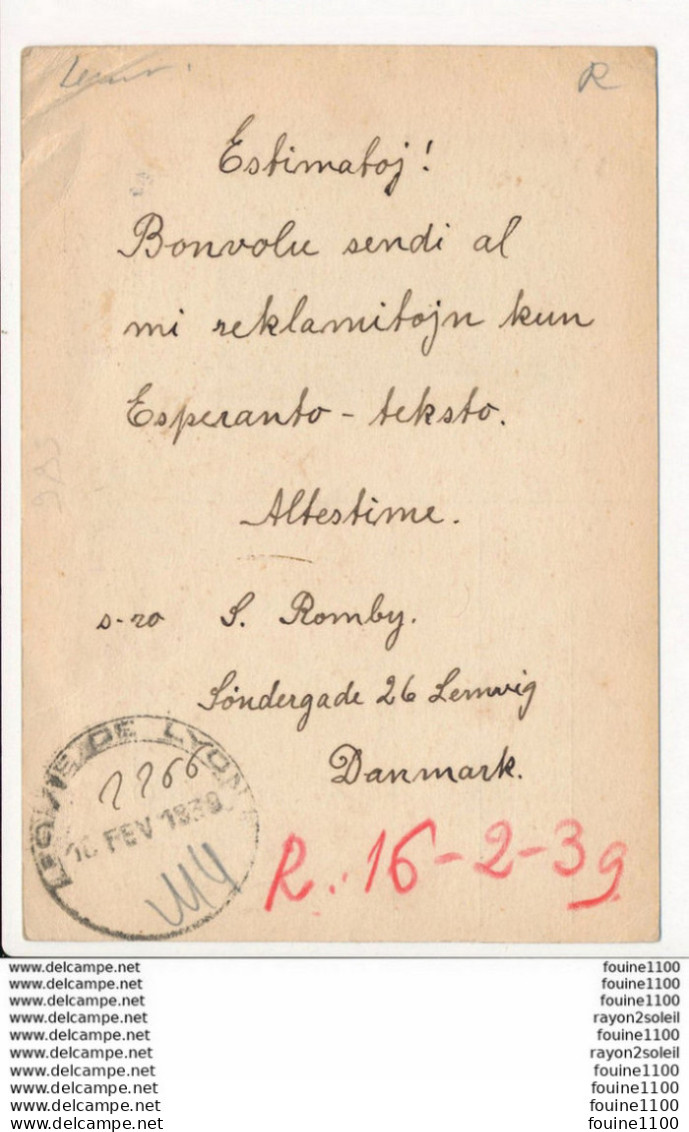 R
Estimatoj!
Bonvolu sendi al
mi reklamitojn kun
Esperanto-teksto.
Altestime.
s-ro S. Romby.
Söndergade 26 Lemvig
Danmark.
DE LYON
2266
16 FEV 1939
R. 16-2-39
www.delcampe.net fouine1100
www.delcampe.net fouine1100
www.delcampe.net fouine1100
www.delcampe.net rayon2soleil
www.delcampe.net fouine1100
www.delcampe.net rayon2soleil
www.delcampe.net fouine1100
www.delcampe.net fouine1100
www.delcampe.net fouine1100
www.delcampe.net fouine1100